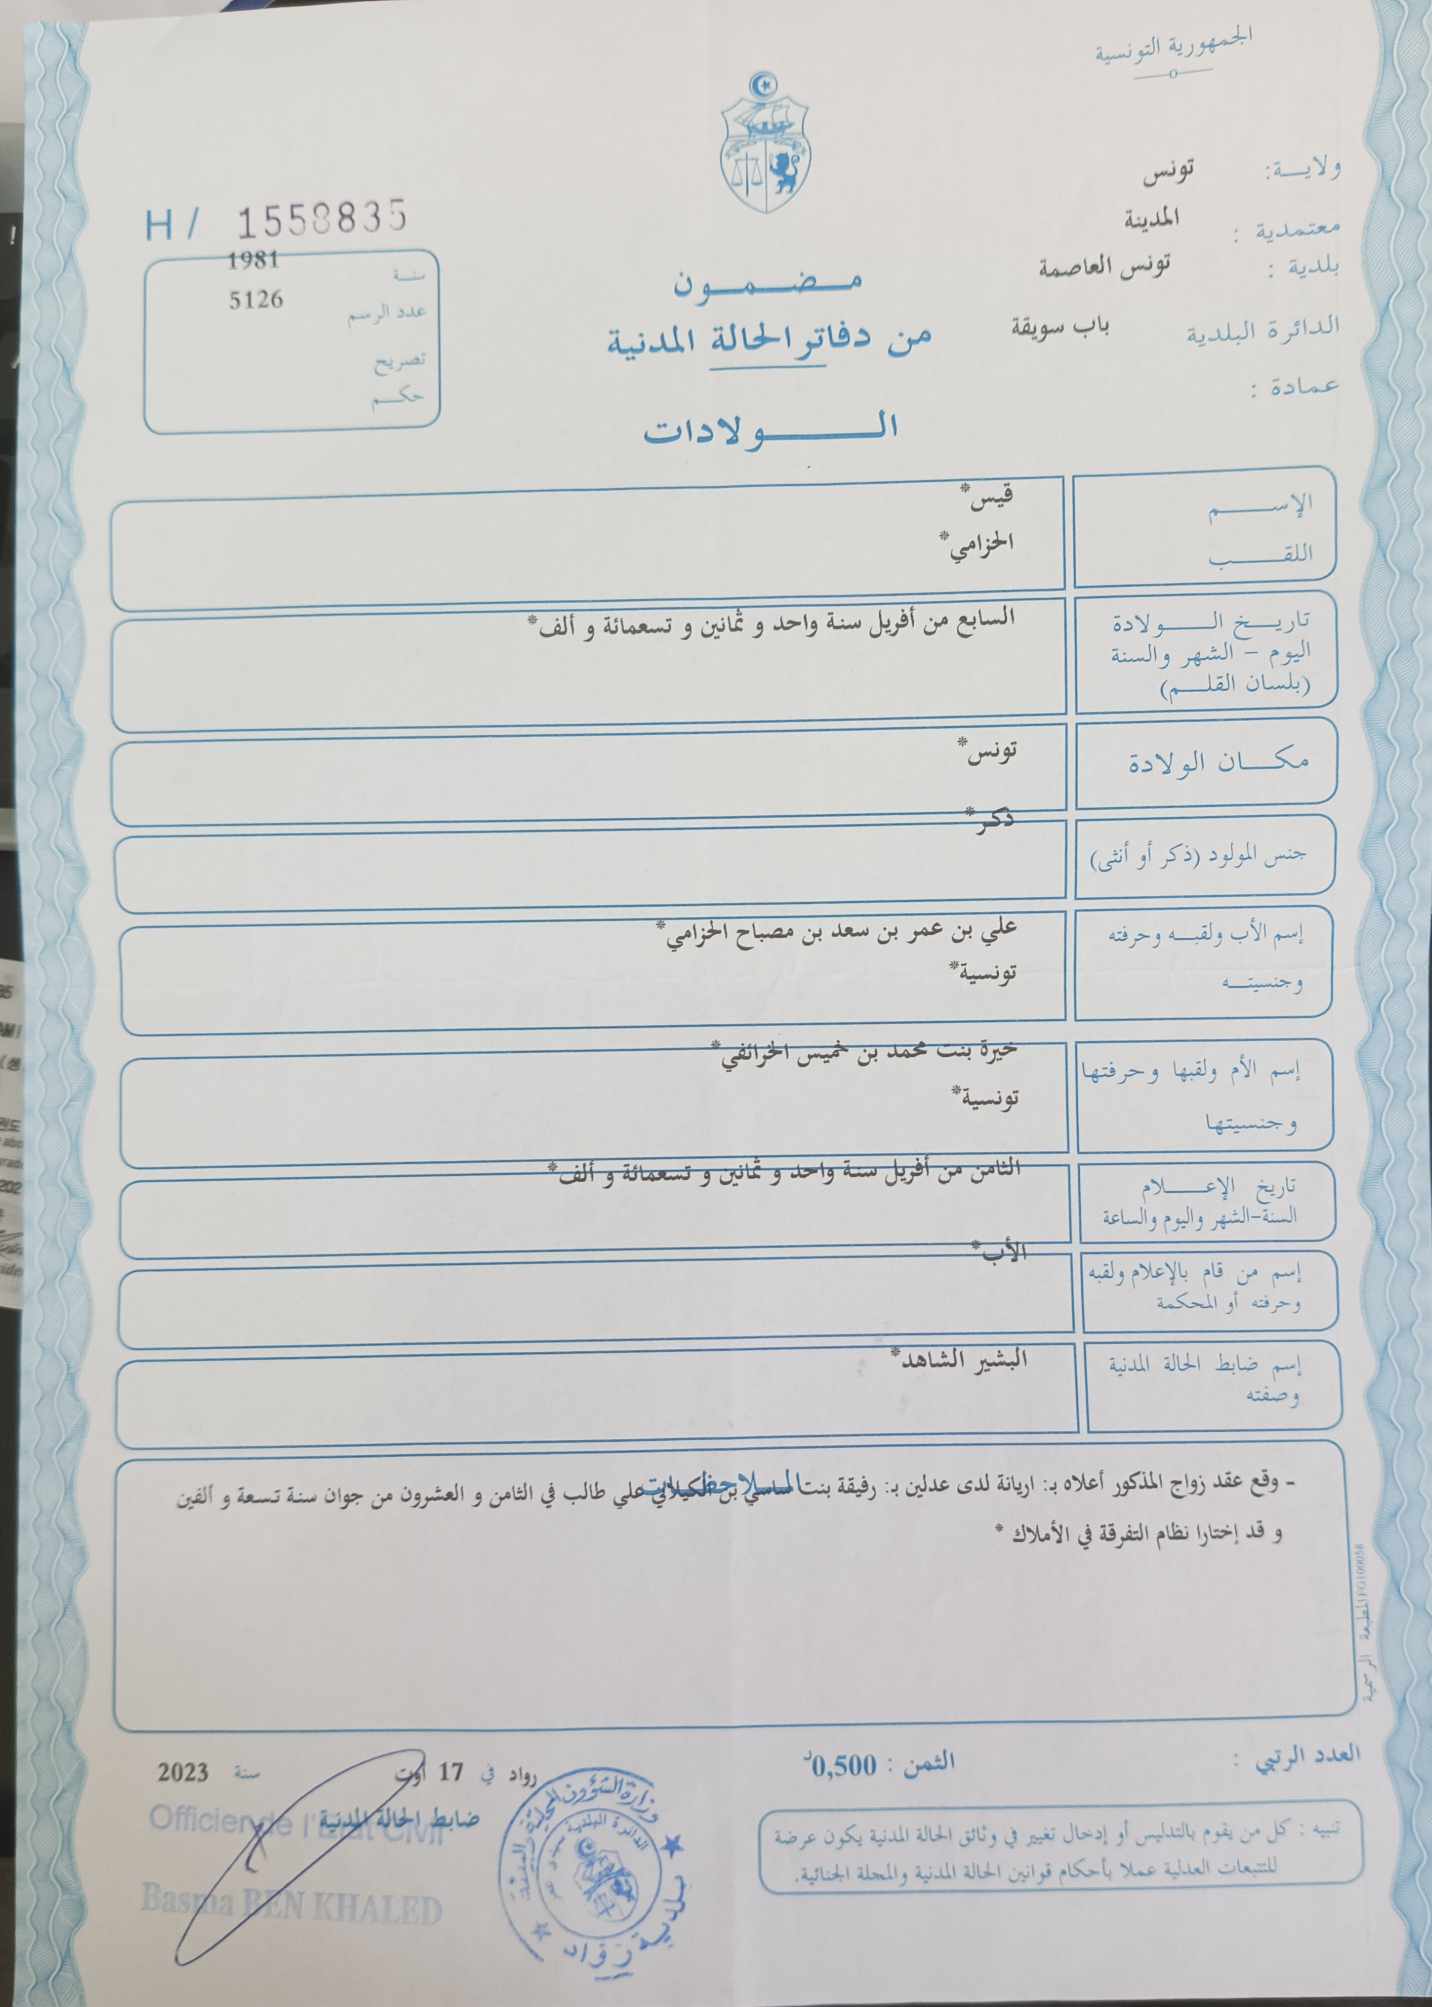 الجمهورية التونسية
ولايـــة: تونس
معتمدية : المدينة
بلدية : تونس العاصمة
الدائرة البلدية باب سويقة
عمادة :
H / 1558835
سنـة 1981
عدد الرسم 5126
تصريح
حكـــم
مـــضـــمـــون
من دفاتر الحالة المدنية
الـــــولادات
الإســـــم قيس*
اللقـــــب الحزامي*
تاريـــخ الـــــولادة السابع من أفريل سنة واحد و ثمانين و تسعمائة و ألف*
اليوم - الشهر والسنة
(بلسان القلـــم)
مكـــان الولادة تونس*
جنس المولود (ذكر أو أنثى) ذكر*
إسم الأب ولقبـــه وحرفته علي بن عمر بن سعد بن مصباح الحزامي*
وجنسيتـــه تونسية*
إسم الأم ولقبها وحرفتها خيرة بنت محمد بن خميس الخرائفي*
وجنسيتها تونسية*
تاريخ الإعـــــلام الثامن من أفريل سنة واحد و ثمانين و تسعمائة و ألف*
السنة-الشهر واليوم والساعة
إسم من قام بالإعلام ولقبه الأب*
وحرفته أو المحكمة
إسم ضابط الحالة المدنية البشير الشاهد*
وصفته
الملاحظـــات
- وقع عقد زواج المذكور أعلاه بـ: اريانة لدى عدلين بـ: رفيقة بنت ساسي بن الكيلاني علي طالب في الثامن و العشرون من جوان سنة تسعة و ألفين
و قد إختارا نظام التفرقة في الأملاك *
المطبعة الرسمية
العدد الرتبي :
الثمن : 0,500د
رواد في 17 اوت سنة 2023
ضابط الحالة المدنية
Officier de l'Etat Civil
Basma BEN KHALED
وزارة الشؤون المحلية والبيئة
بلدية رواد
تنبيه : كل من يقوم بالتدليس أو إدخال تغيير في وثائق الحالة المدنية يكون عرضة
للتتبعات العدلية عملا بأحكام قوانين الحالة المدنية والمجلة الجنائية.